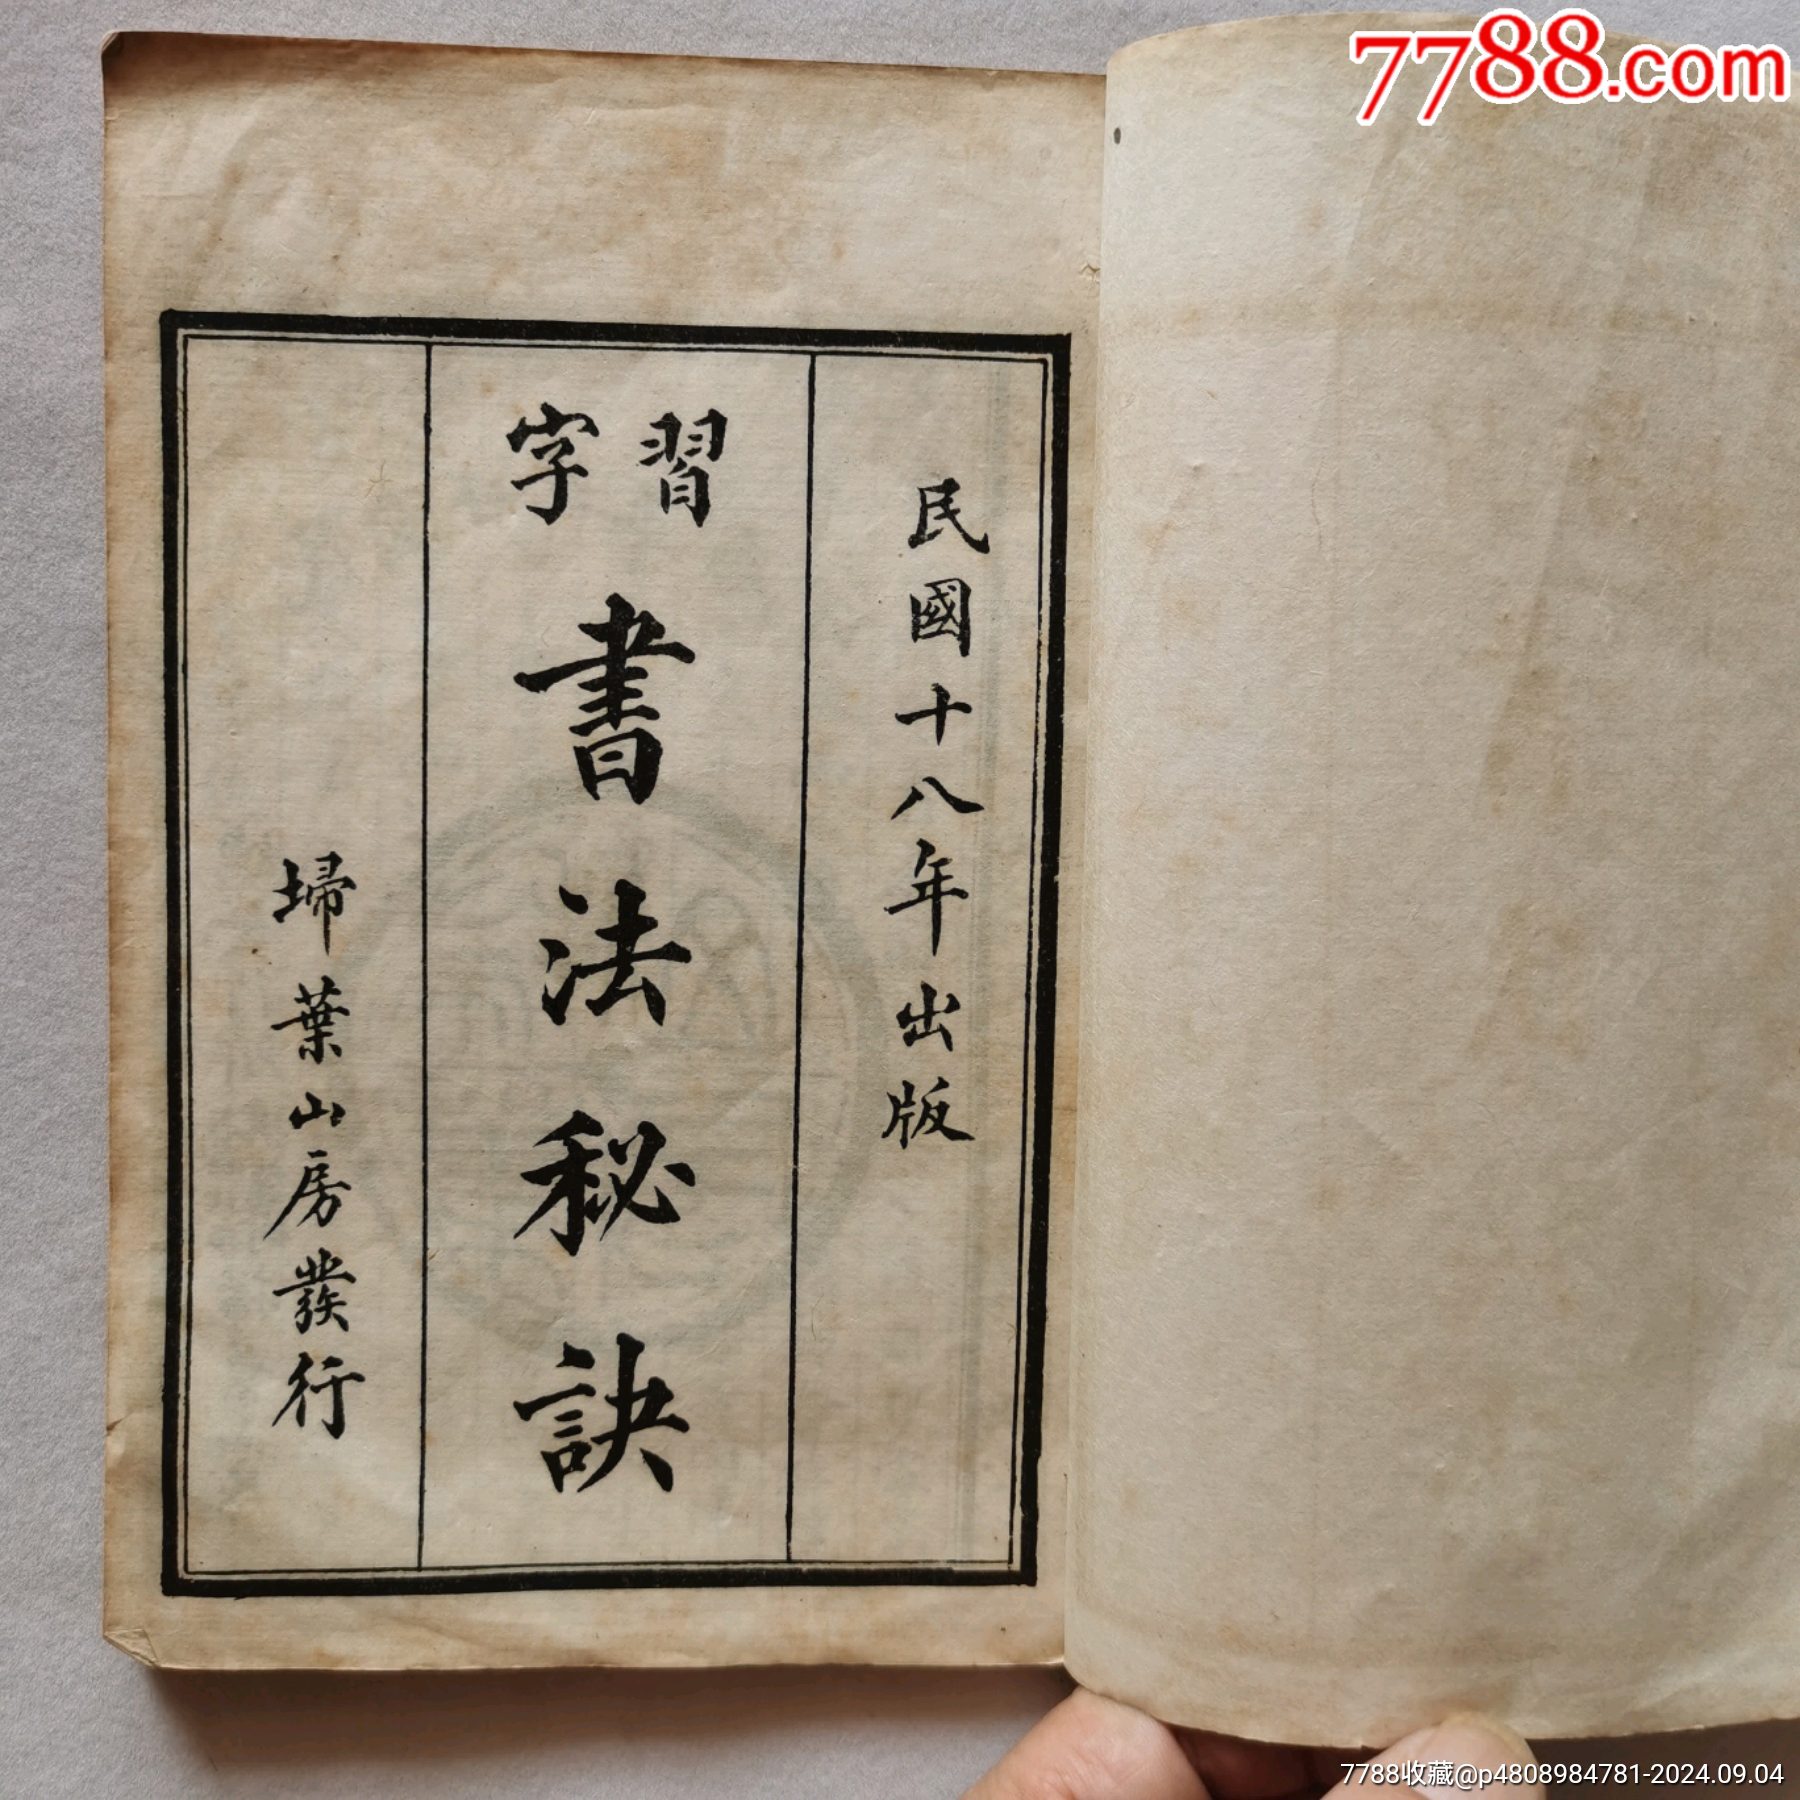 7788.com
民國十八年出版
習字
書法秘訣
埽葉山房發行
7788收藏@p4808984781-2024.09.04